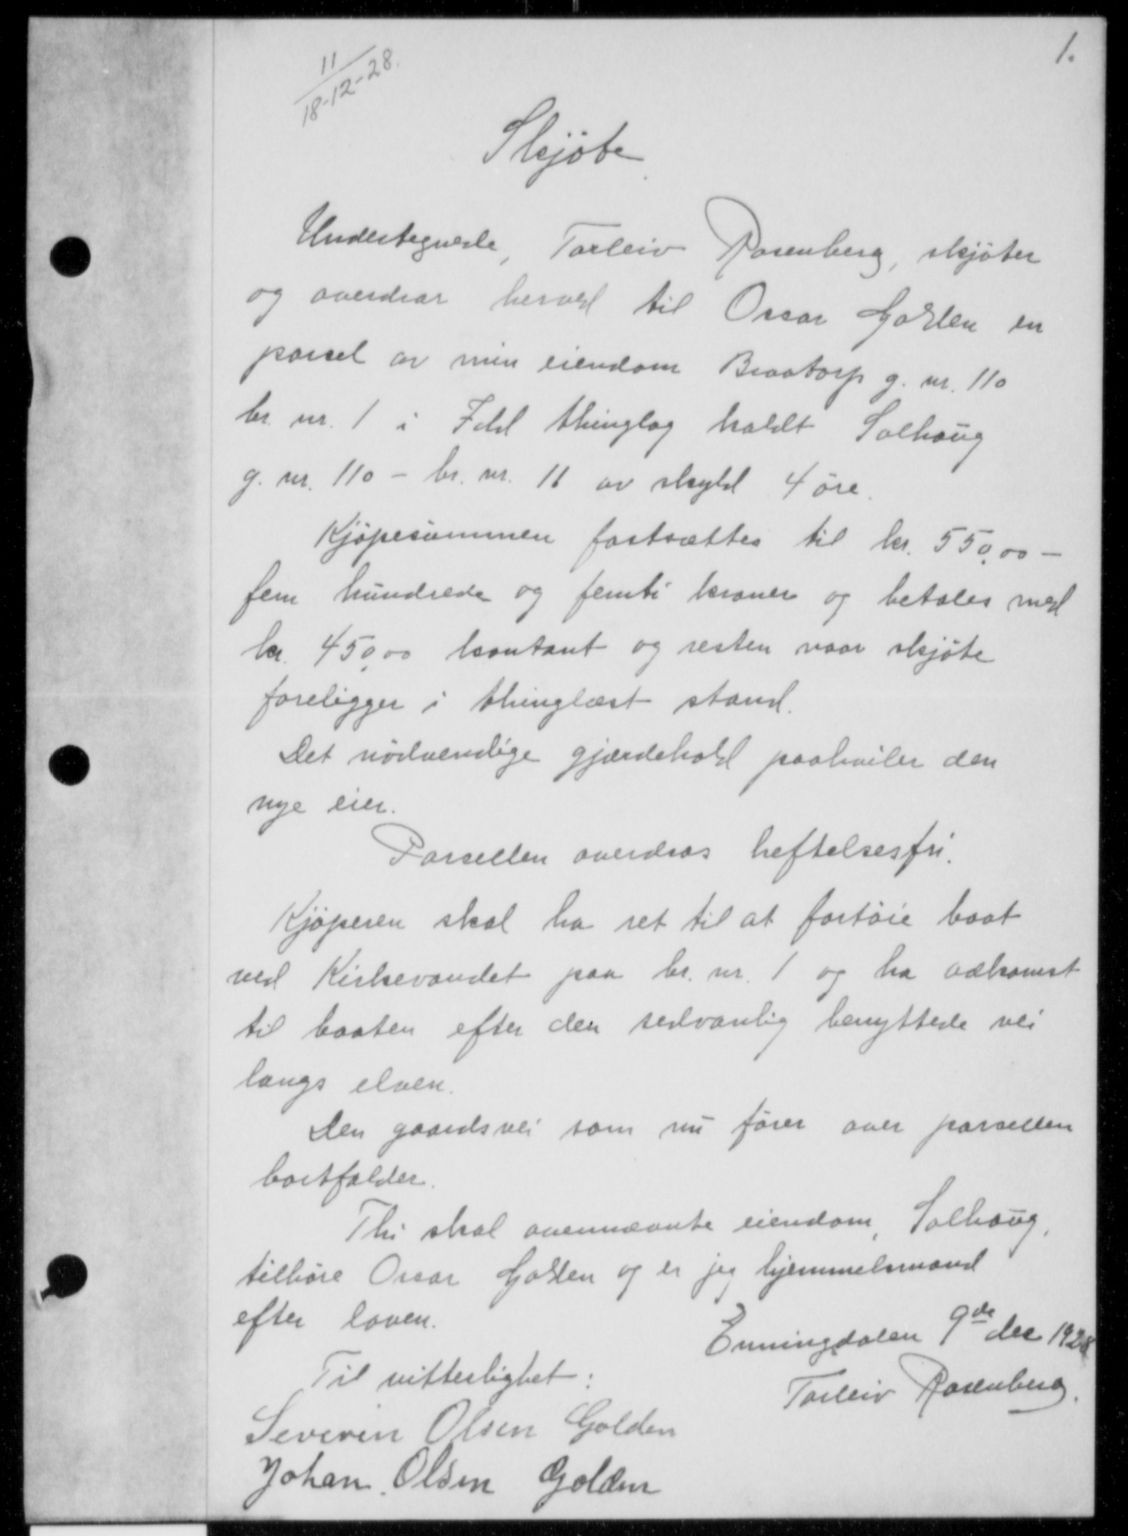 1.
11
18-12-28.
Skjøte
Undertegnede, Torleiv Rosenberg, skjøter
og overdrar herved til Oscar Golden en
parsel av min eiendom Braatorp g. nr. 110
br. nr. 1 i Idd thinglag kaldt Solhaug
g. nr. 110 - br. nr. 11 av skyld 4 øre.
Kjøpesummen fastsættes til kr. 550,00 -
fem hundrede og femti kroner og betales med
kr. 450,00 kontant og resten naar skjøte
foreligger i thinglæst stand.
Det nødvendige gjærdehold paahviler den
nye eier.
Parsellen overdras heftelsesfri.
Kjøperen skal ha ret til at fortøie baat
ved Kirkevandet paa br. nr. 1 og ha adkomst
til baaten efter den sedvanlig benyttede vei
langs elven.
Den gaardsvei som nu fører over parsellen
bortfalder.
Thi skal ovennævnte eiendom, Solhaug,
tilhøre Oscar Golden og er jeg hjemmelsmand
efter loven.
Enningdalen 9de dec 1928
Torleiv Rosenberg.
Til vitterlighet:
Severin Olsen Golden
Johan Olsen Golden